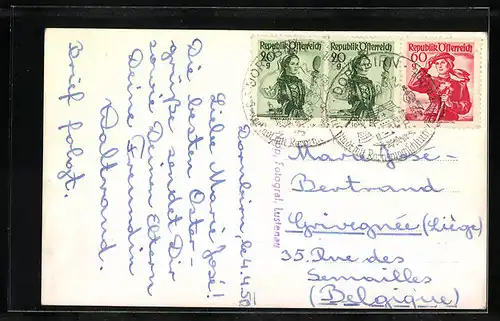 Dornbirn, 4.4.50
Liebe Marie José!
Die besten Oster-
grüße sendet Dir
sowie Deinen Eltern
Deine Freundin
Waltraud.
Brief folgt.
Republik Österreich
20
g
Republik Österreich
20
g
Republik Österreich
60
g
DORNBIRN
Fotograf, Lustenau
Marie José-
Bertrand
Grivegnée (Liège)
35. Rue des
Semailles
(Belgique)